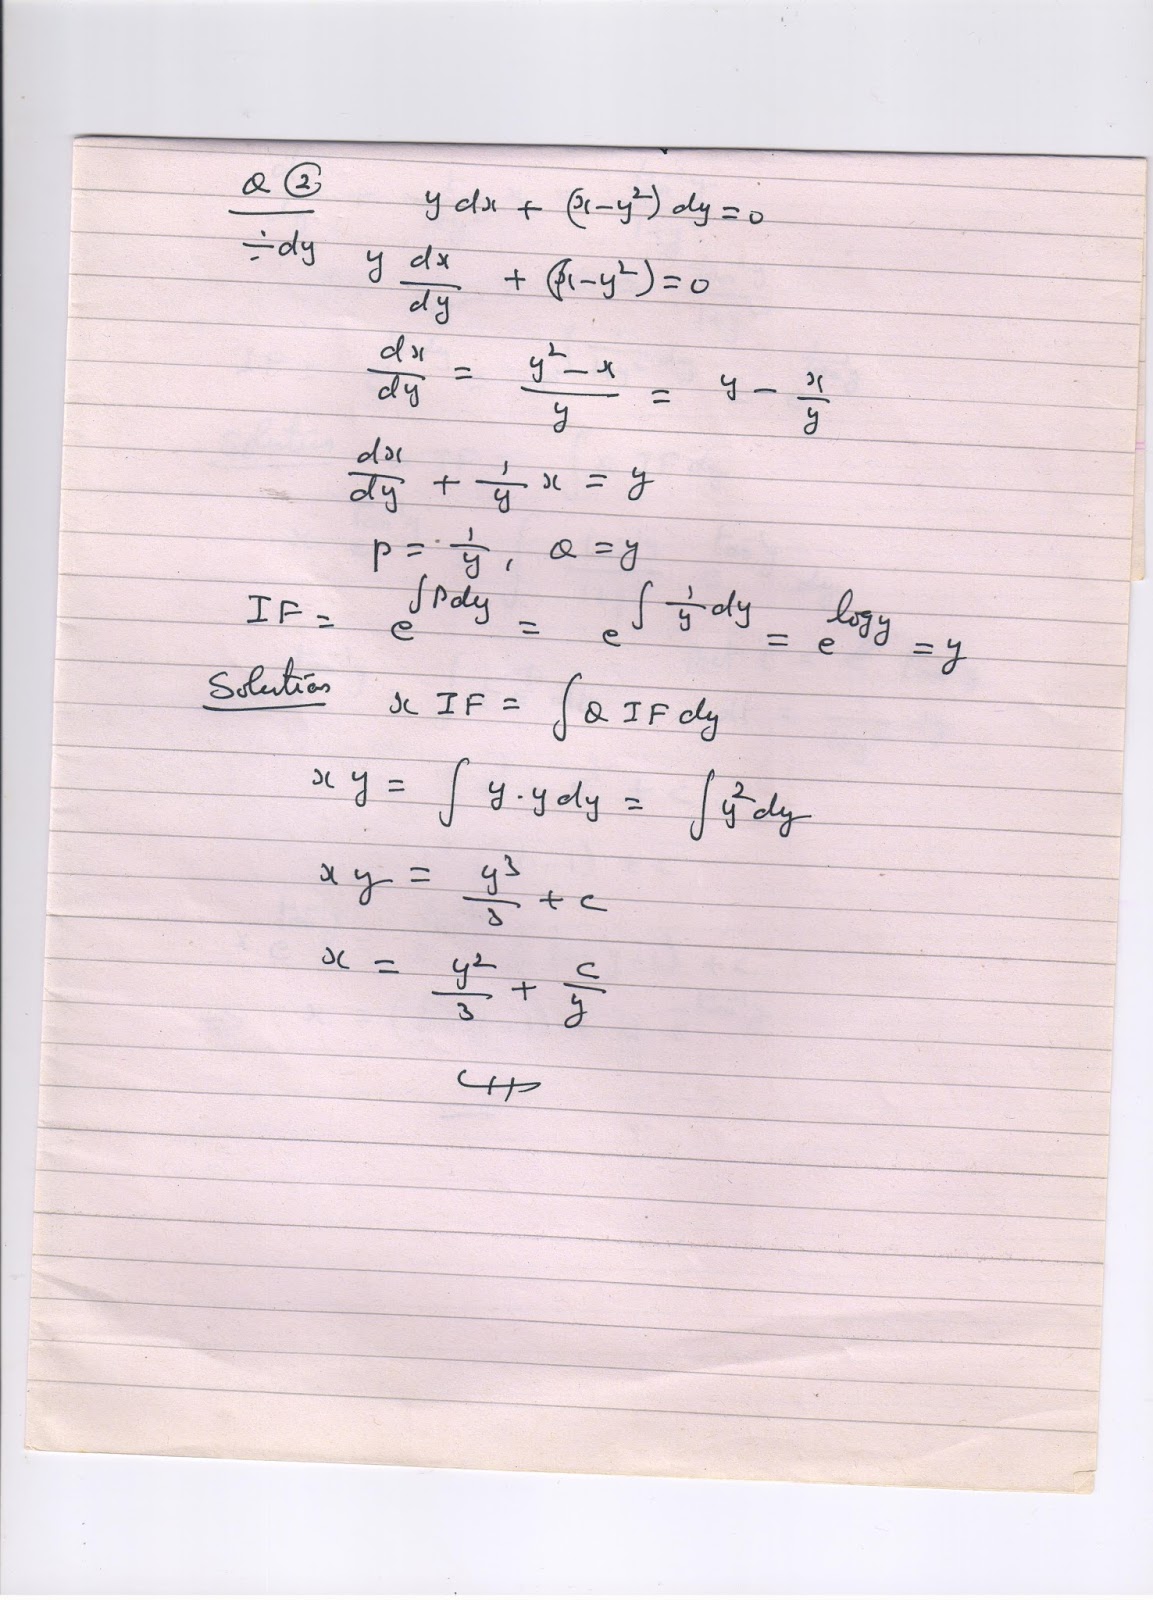 Q ② y dx + (x-y²) dy = 0
÷dy y dx/dy + (x-y²) = 0
dx/dy = (y²-x)/y = y - x/y
dx/dy + 1/y x = y
P = 1/y, Q = y
IF = e^∫Pdy = e^∫1/y dy = e^logy = y
Solution x IF = ∫Q IF dy
xy = ∫y.y dy = ∫y² dy
xy = y³/3 + c
x = y²/3 + c/y